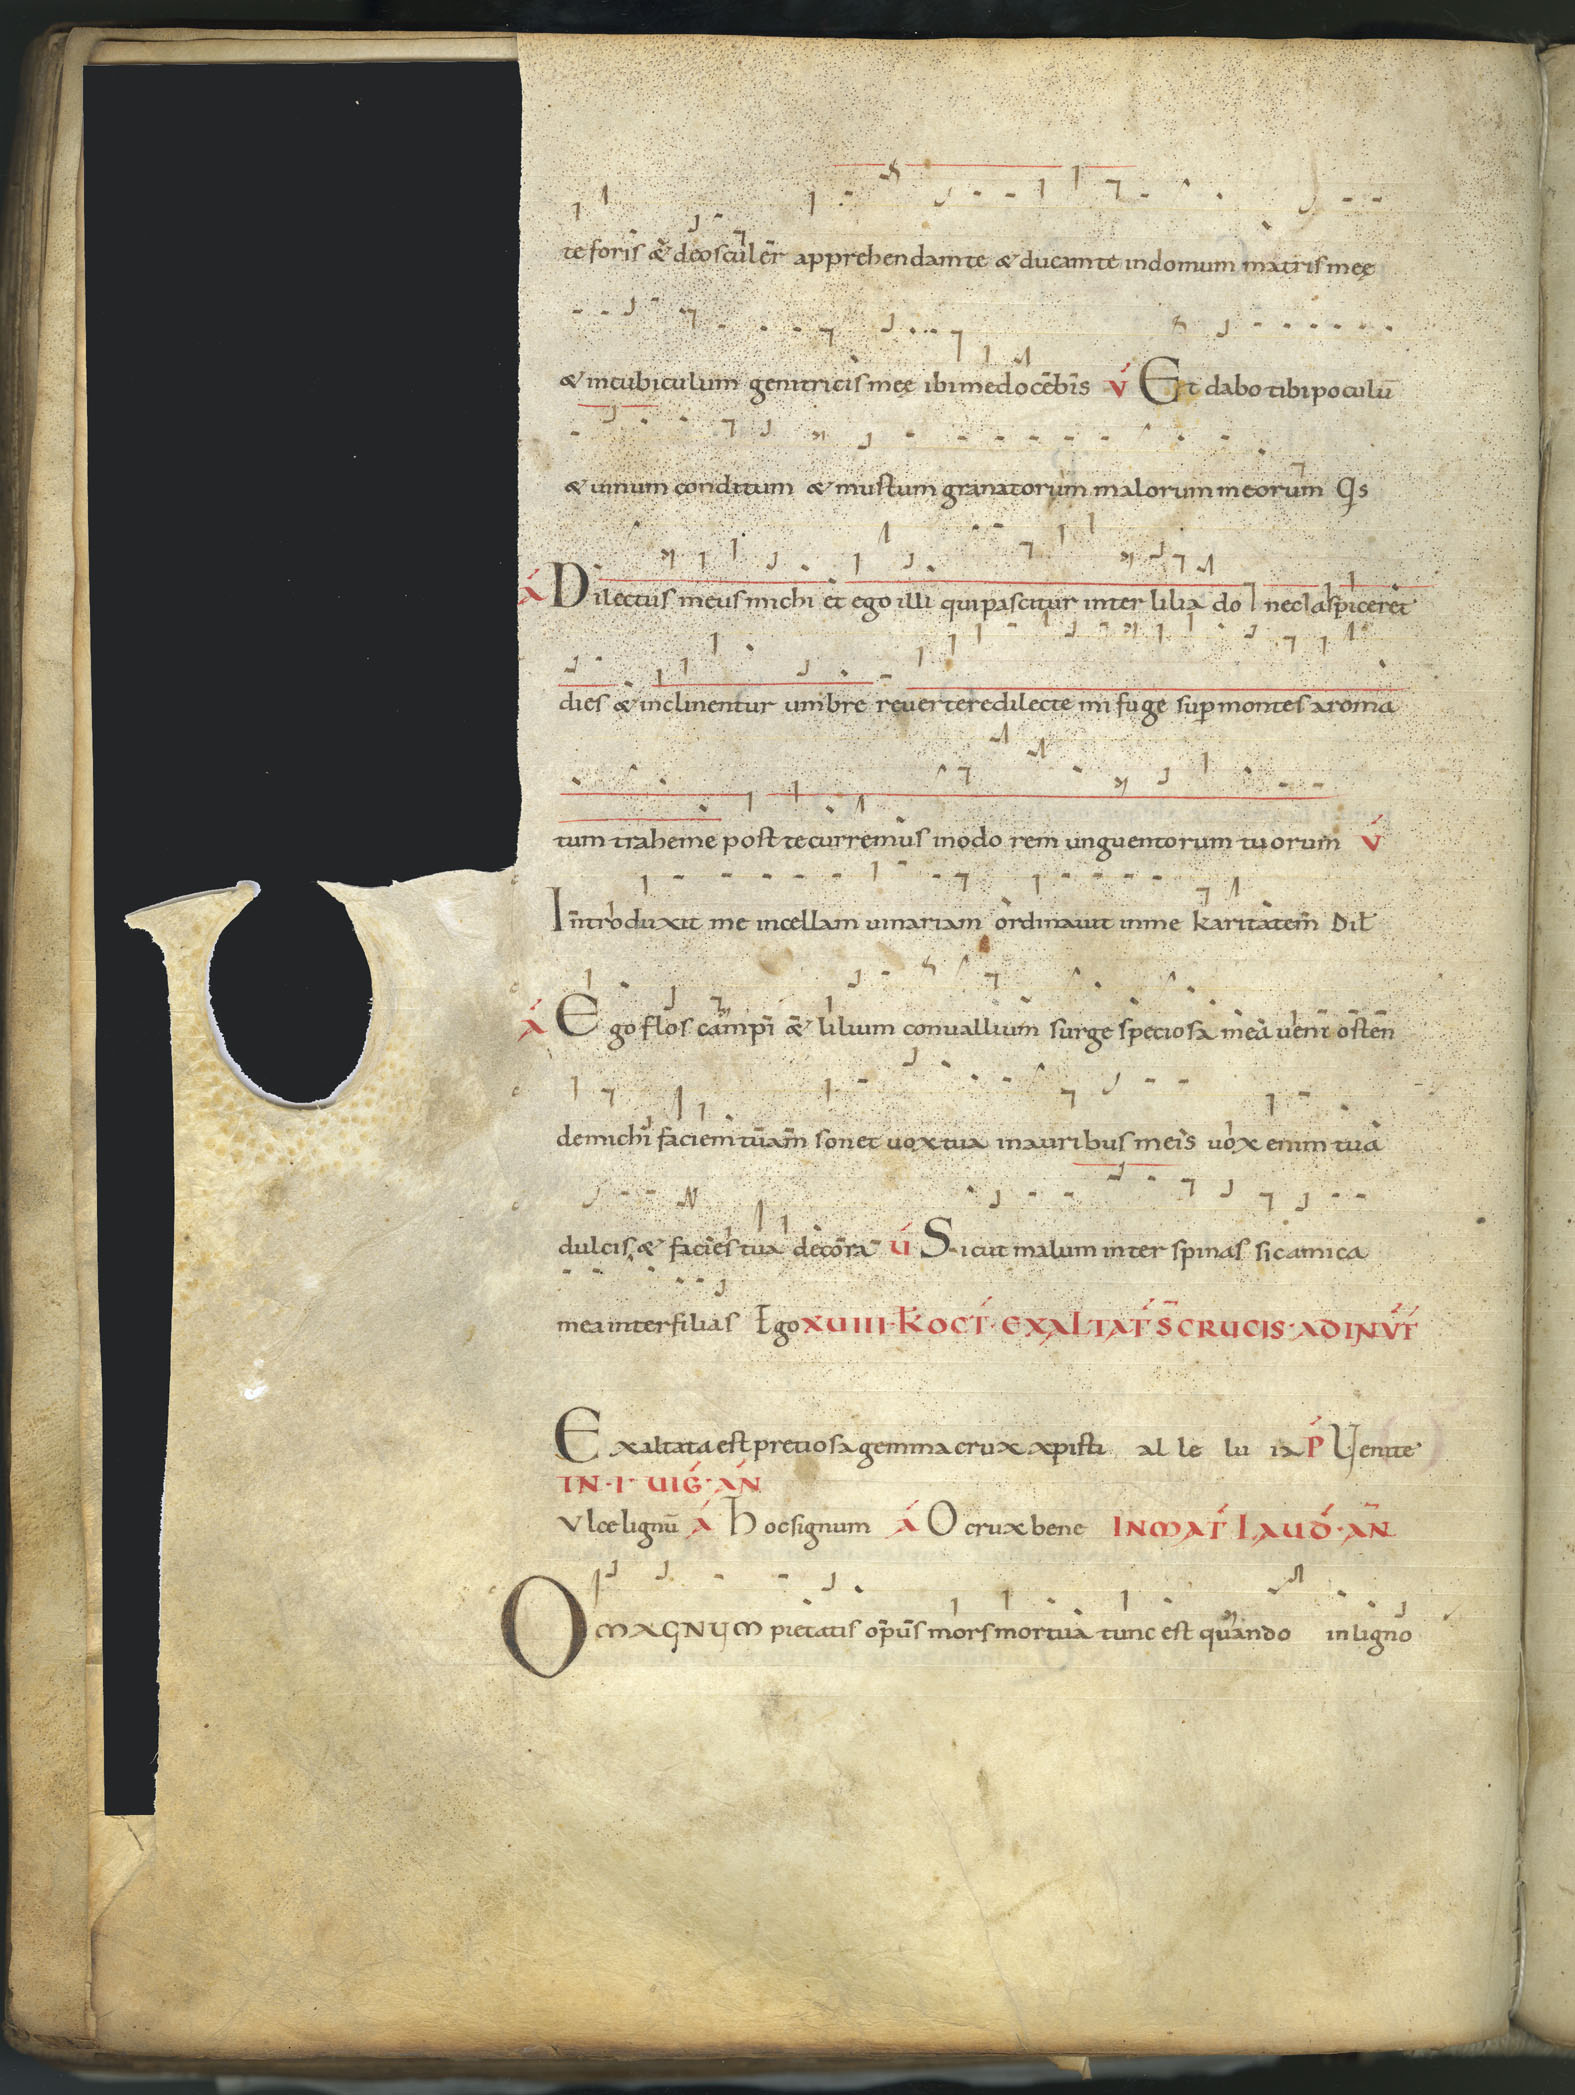 te foris & deosculer apprehendam te & ducam te in domum matris meę
& in cubiculum genitricis meę ibi me docebis v̕ Et dabo tibi poculū
& uinum conditum & mustum granatorum malorum meorum Qs
A̕ Dilectus meus michi et ego illi qui pascitur inter lilia do nec aspiceret
dies & inclinentur umbre reuertere dilecte mi fuge sup montes aroma
tum trahe me post te curremus in odo rem unguentorum tuorum v̕
Introduxit me in cellam uinariam ordinauit in me karitatem Dil
A̕ Ego flos campi & lilium conuallium surge speciosa mea ueni osten
de michi faciem tuam sonet uox tua in auribus meis uox enim tua
dulcis & facies tua decora v̕ Sicut malum inter spinas sic amica
mea inter filias Ego XVIII·K̄ OCT̕·EXALTAT̕ S̄ CRUCIS·AD INVT̕
Exaltata est pretiosa gemma crux xp̄isti al le lu ia P̕ Venite
IN·I· UIG̕·AN̕
Vlce lignū A̕ Hoc signum A̕ O crux bene IN MAT̕ LAUD̕·AN̄
O MAGNUM pietatis opus mors mortua tunc est quando in ligno